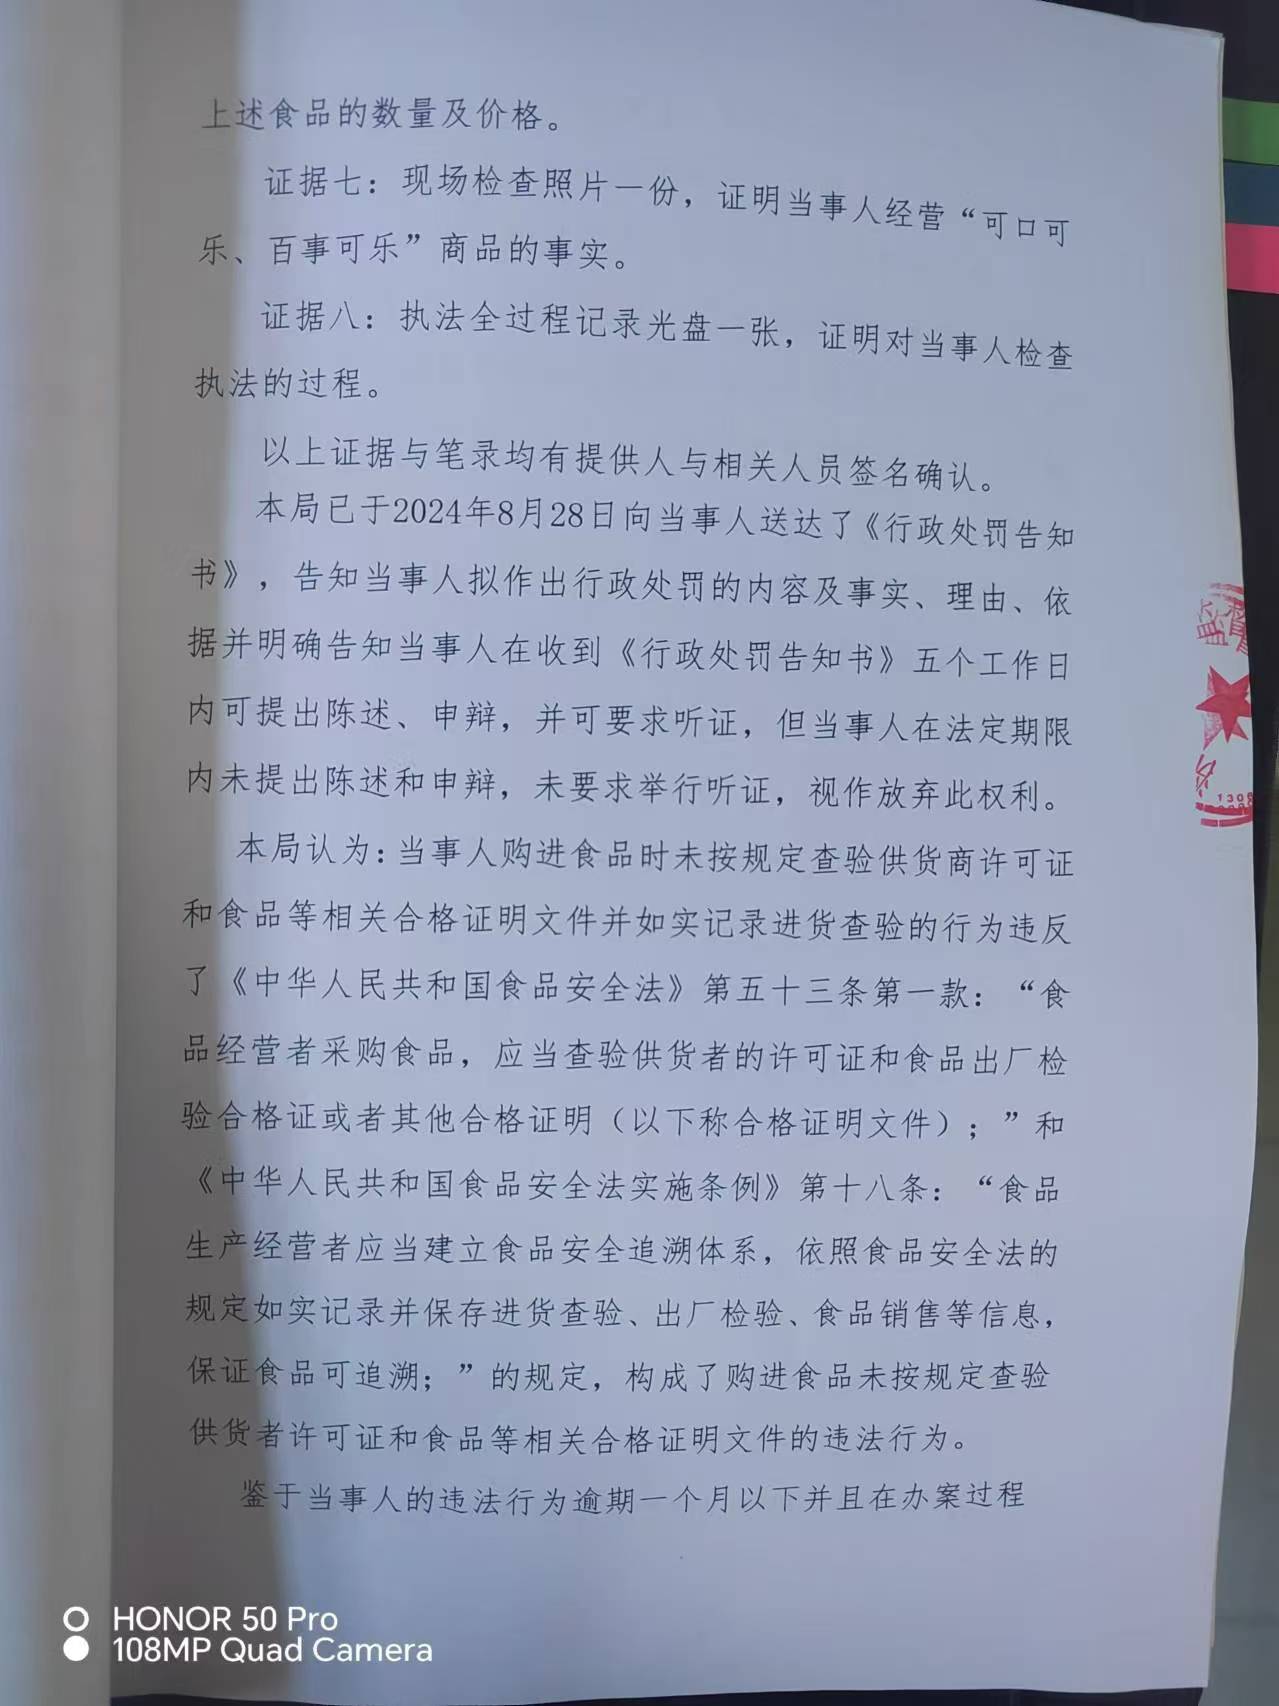 上述食品的数量及价格。
证据七：现场检查照片一份，证明当事人经营“可口可
乐、百事可乐”商品的事实。
证据八：执法全过程记录光盘一张，证明对当事人检查
执法的过程。
以上证据与笔录均有提供人与相关人员签名确认。
本局已于2024年8月28日向当事人送达了《行政处罚告知
书》，告知当事人拟作出行政处罚的内容及事实、理由、依
据并明确告知当事人在收到《行政处罚告知书》五个工作日
内可提出陈述、申辩，并可要求听证，但当事人在法定期限
内未提出陈述和申辩，未要求举行听证，视作放弃此权利。
本局认为：当事人购进食品时未按规定查验供货商许可证
和食品等相关合格证明文件并如实记录进货查验的行为违反
了《中华人民共和国食品安全法》第五十三条第一款：“食
品经营者采购食品，应当查验供货者的许可证和食品出厂检
验合格证或者其他合格证明（以下称合格证明文件）；”和
《中华人民共和国食品安全法实施条例》第十八条：“食品
生产经营者应当建立食品安全追溯体系，依照食品安全法的
规定如实记录并保存进货查验、出厂检验、食品销售等信息，
保证食品可追溯；”的规定，构成了购进食品未按规定查验
供货者许可证和食品等相关合格证明文件的违法行为。
鉴于当事人的违法行为逾期一个月以下并且在办案过程
监督
1306
HONOR 50 Pro
108MP Quad Camera